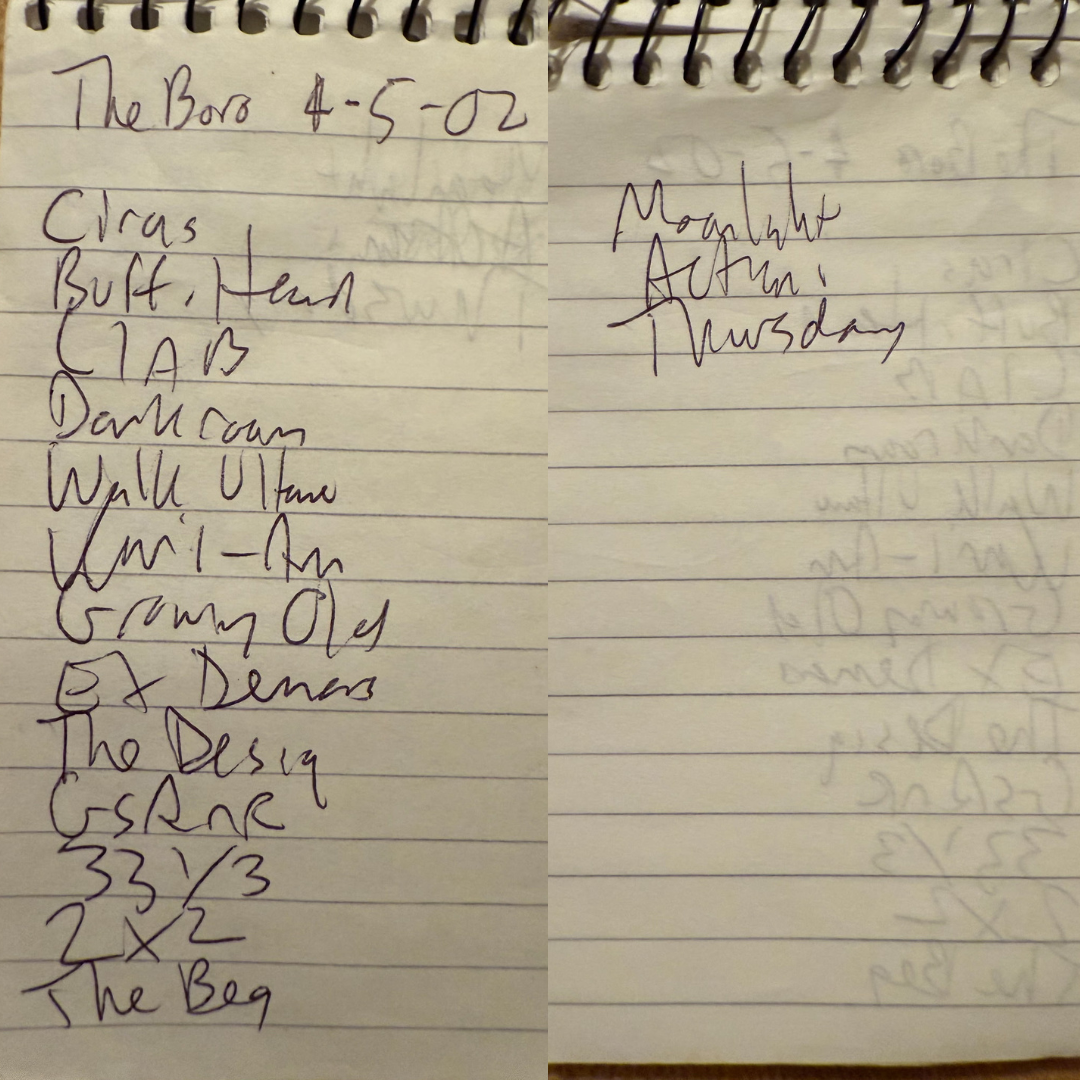 The Boro 4-5-02
Ciras
Buff. Head
CIAB
Darkroom
Walk
Growing Old
Ex Demons
The Desig
GSRnR
33 1/3
2x2
The Beg
Moonlight
Action
Thursday